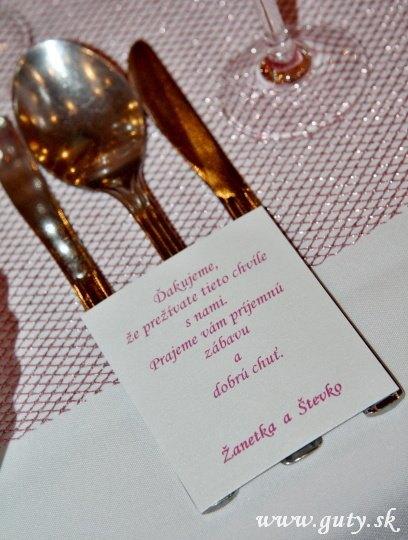 Ďakujeme,
že prežívate tieto chvíle
s nami.
Prajeme vám príjemnú
zábavu
a
dobrú chuť.
Žanetka a Števko
www.guty.sk